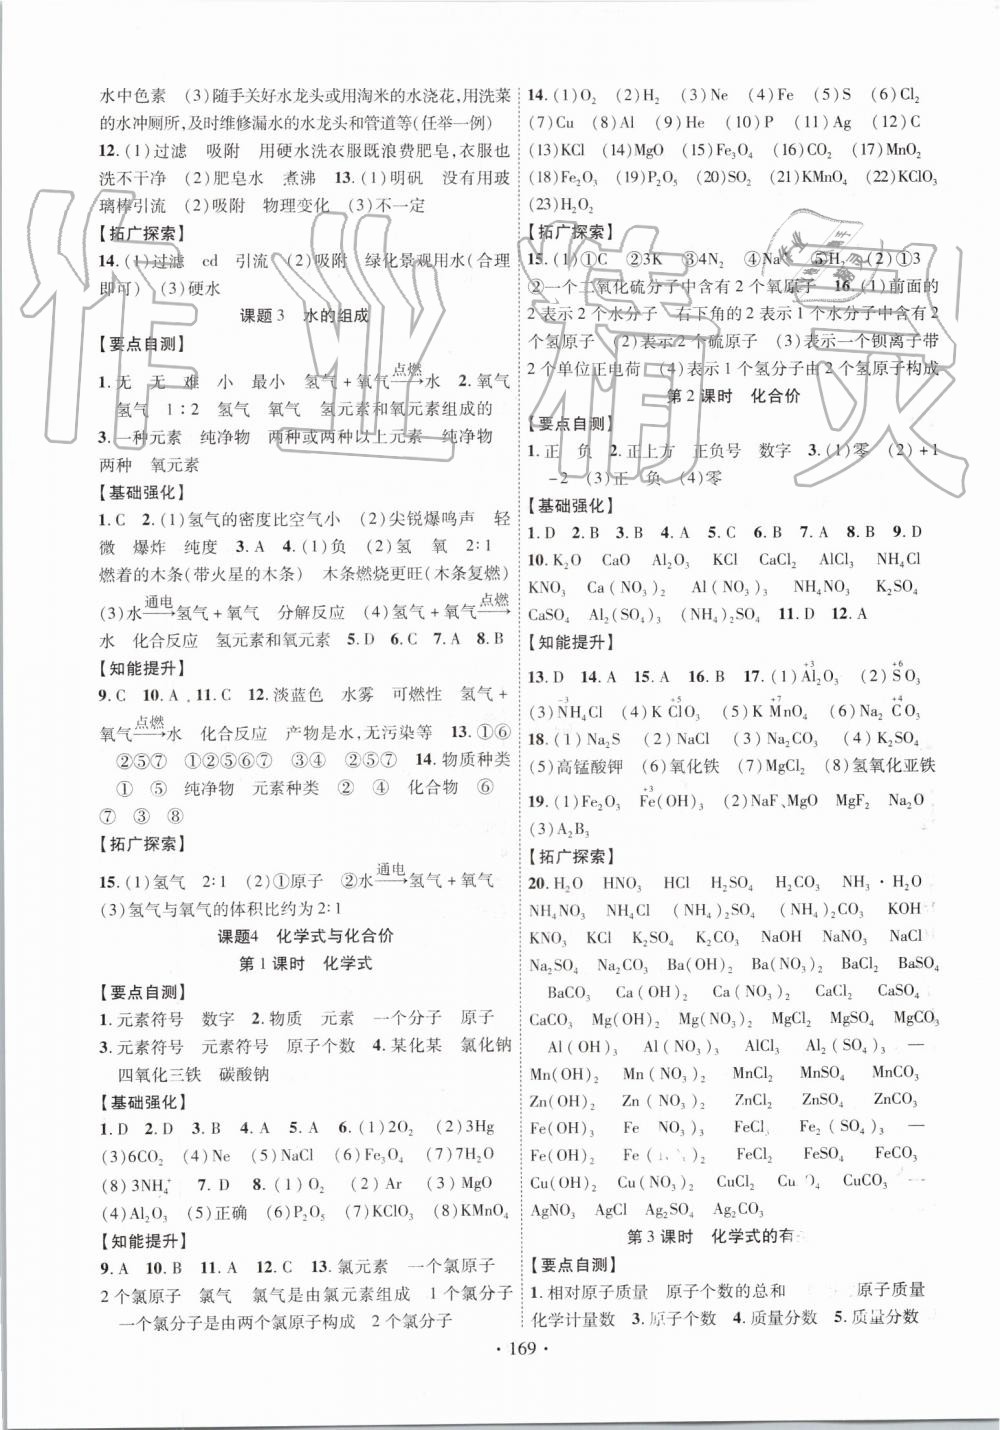 水中色素 (3)随手关好水龙头或用淘米的水浇花,用洗菜
的水冲厕所,及时维修漏水的水龙头和管道等(任举一例)
12. (1)过滤 吸附 用硬水洗衣服既浪费肥皂,衣服也
洗不干净 (2)肥皂水 煮沸 13. (1)明矾 没有用玻
璃棒引流 (2)吸附 物理变化 (3)不一定
【拓广探索】
14. (1)过滤 cd 引流 (2)吸附 绿化景观用水(合理
即可) (3)硬水
课题3 水的组成
【要点自测】
1. 无 无 难 小 最小 氢气+氧气 点燃→ 水 2. 氧气
氢气 1∶2 氢气 氧气 氢元素和氧元素组成的
3. 一种元素 纯净物 两种或两种以上元素 纯净物
两种 氧元素
【基础强化】
1. C 2. (1)氢气的密度比空气小 (2)尖锐爆鸣声 轻
微 爆炸 纯度 3. A 4. (1)负 (2)氢 氧 2∶1
燃着的木条(带火星的木条) 木条燃烧更旺(木条复燃)
(3)水 通电→ 氢气+氧气 分解反应 (4)氢气+氧气 点燃→
水 化合反应 氢元素和氧元素 5. D 6. C 7. A 8. B
【知能提升】
9. C 10. A 11. C 12. 淡蓝色 水雾 可燃性 氢气+
氧气 点燃→ 水 化合反应 产物是水,无污染等 13. ①⑥
②⑤⑦ ①②⑤⑥⑦ ③④ ②⑤⑦ 14. 物质种类
① ⑤ 纯净物 元素种类 ② ④ 化合物 ⑥
⑦ ③ ⑧
【拓广探索】
15. (1)氢气 2∶1 (2)①原子 ②水 通电→ 氢气+氧气
(3)氢气与氧气的体积比约为2∶1
课题4 化学式与化合价
第1课时 化学式
【要点自测】
1. 元素符号 数字 2. 物质 元素 一个分子 原子
3. 元素符号 元素符号 原子个数 4. 某化某 氯化钠
四氧化三铁 碳酸钠
【基础强化】
1. D 2. D 3. B 4. A 5. A 6. (1)2O₂ (2)3Hg
(3)6CO₂ (4)Ne (5)NaCl (6)Fe₃O₄ (7)7H₂O
(8)3NH₄⁺ 7. D 8. (1)O₂ (2)Ar (3)MgO
(4)Al₂O₃ (5)正确 (6)P₂O₅ (7)KClO₃ (8)KMnO₄
【知能提升】
9. A 10. B 11. A 12. C 13. 氯元素 一个氯原子
2个氯原子 氯气 氯气是由氯元素组成 1个氯分子
一个氯分子是由两个氯原子构成 2个氯分子
14. (1)O₂ (2)H₂ (3)Ne (4)Fe (5)S (6)Cl₂
(7)Cu (8)Al (9)He (10)P (11)Ag (12)C
(13)KCl (14)MgO (15)Fe₃O₄ (16)CO₂ (17)MnO₂
(18)Fe₂O₃ (19)P₂O₅ (20)SO₂ (21)KMnO₄ (22)KClO₃
(23)H₂O₂
【拓广探索】
15. (1)①C ②3K ③4N₂ ④Na⁺ ⑤H₂ (2)①3
②一个二氧化硫分子中含有2个氧原子 16. (1)前面的
2表示2个水分子 右下角的2表示1个水分子中含有2
个氢原子 (2)表示2个硫原子 (3)表示一个钡离子带
2个单位正电荷 (4)表示1个氢分子由2个氢原子构成
第2课时 化合价
【要点自测】
1. 正 负 2. 正上方 正负号 数字 3. (1)零 (2)+1
-2 (3)正 负 (4)零
【基础强化】
1. D 2. B 3. B 4. C 5. C 6. B 7. B 8. B 9. D
10. K₂O CaO Al₂O₃ KCl CaCl₂ AlCl₃ NH₄Cl
KNO₃ Ca(NO₃)₂ Al(NO₃)₃ NH₄NO₃ K₂SO₄
CaSO₄ Al₂(SO₄)₃ (NH₄)₂SO₄ 11. D 12. A
【知能提升】
13. D 14. A 15. A 16. B 17. (1)<sup>+3</sup>Al₂O₃ (2)<sup>+6</sup>SO₃
(3)<sup>-3</sup>NH₄Cl (4)K<sup>+5</sup>ClO₃ (5)K<sup>+7</sup>MnO₄ (6)Na₂<sup>+4</sup>CO₃
18. (1)Na₂S (2)NaCl (3)Na₂CO₃ (4)K₂SO₄
(5)高锰酸钾 (6)氧化铁 (7)MgCl₂ (8)氢氧化亚铁
19. (1)Fe₂O₃ <sup>+3</sup>Fe(OH)₃ (2)NaF、MgO MgF₂ Na₂O
(3)A₂B₃
【拓广探索】
20. H₂O HNO₃ HCl H₂SO₄ H₂CO₃ NH₃·H₂O
NH₄NO₃ NH₄Cl (NH₄)₂SO₄ (NH₄)₂CO₃ KOH
KNO₃ KCl K₂SO₄ K₂CO₃ NaOH NaNO₃ NaCl
Na₂SO₄ Na₂CO₃ Ba(OH)₂ Ba(NO₃)₂ BaCl₂ BaSO₄
BaCO₃ Ca(OH)₂ Ca(NO₃)₂ CaCl₂ CaSO₄
CaCO₃ Mg(OH)₂ Mg(NO₃)₂ MgCl₂ MgSO₄ MgCO₃
Al(OH)₃ Al(NO₃)₃ AlCl₃ Al₂(SO₄)₃ —
Mn(OH)₂ Mn(NO₃)₂ MnCl₂ MnSO₄ MnCO₃
Zn(OH)₂ Zn(NO₃)₂ ZnCl₂ ZnSO₄ ZnCO₃
Fe(OH)₃ Fe(NO₃)₃ FeCl₃ Fe₂(SO₄)₃ —
Fe(OH)₂ FeCl₂ FeSO₄ FeCO₃
Cu(OH)₂ Cu(NO₃)₂ CuCl₂ CuCO₃
AgNO₃ AgCl Ag₂SO₄ Ag₂CO₃
第3课时 化学式的有
【要点自测】
1. 相对原子质量 原子个数的总和 原子质量
化学计量数 2. 原子个数 3. 原子个数 4. 质量分数 5. 质量分数
· 169 ·
作业精灵